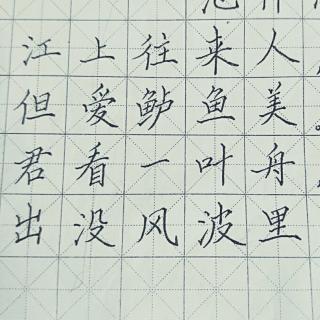 江上往来人
但爱鲈鱼美。
君看一叶舟
出没风波里